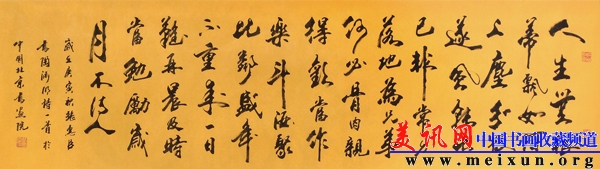 人生無根
蒂飄如陌
上塵分散
逐風轉此
已非常身
落地為兄弟
何必骨肉親
得歡當作
樂斗酒聚
比鄰盛年
不重來一日
難再晨及時
當勉勵歲
月不待人
庚寅秋張
書陶淵明詩一首於
中國北京書畫院
美讯网 中国书画收藏频道
www.meixun.org